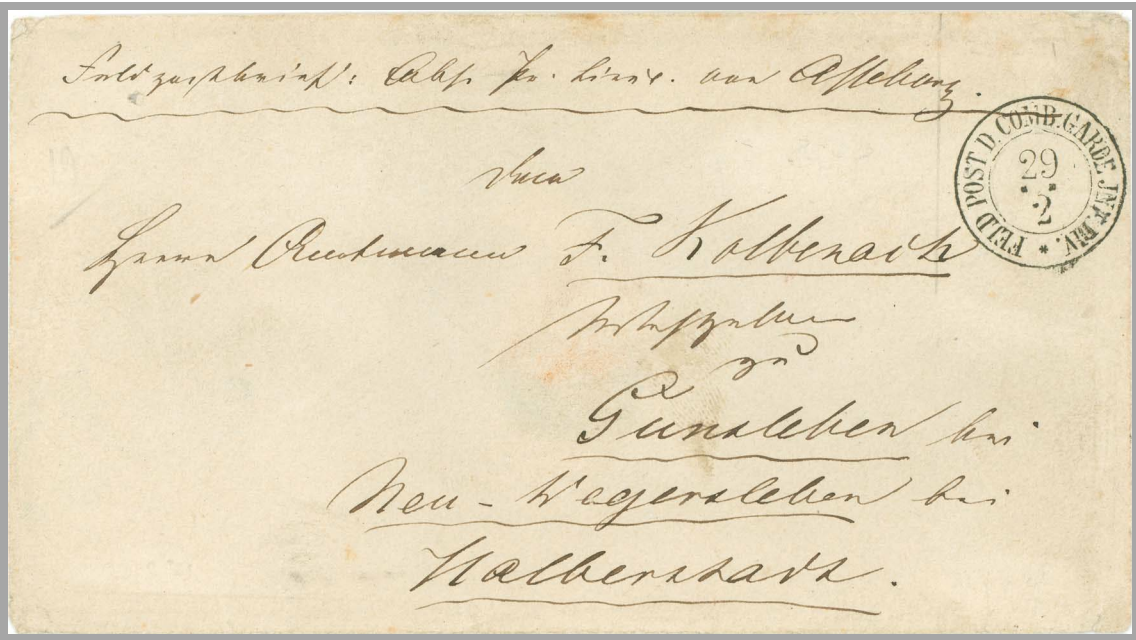 Feldpostbrief: Abs. Pr. Lieut. von Asseburg.
FELD POST D. COMB. GARDE JNF. DIV.
29
2
Dem
Herrn Amtmann F. Kolbenach
zu
Gunsleben bei
Neu-Wegersleben bei
Halberstadt.